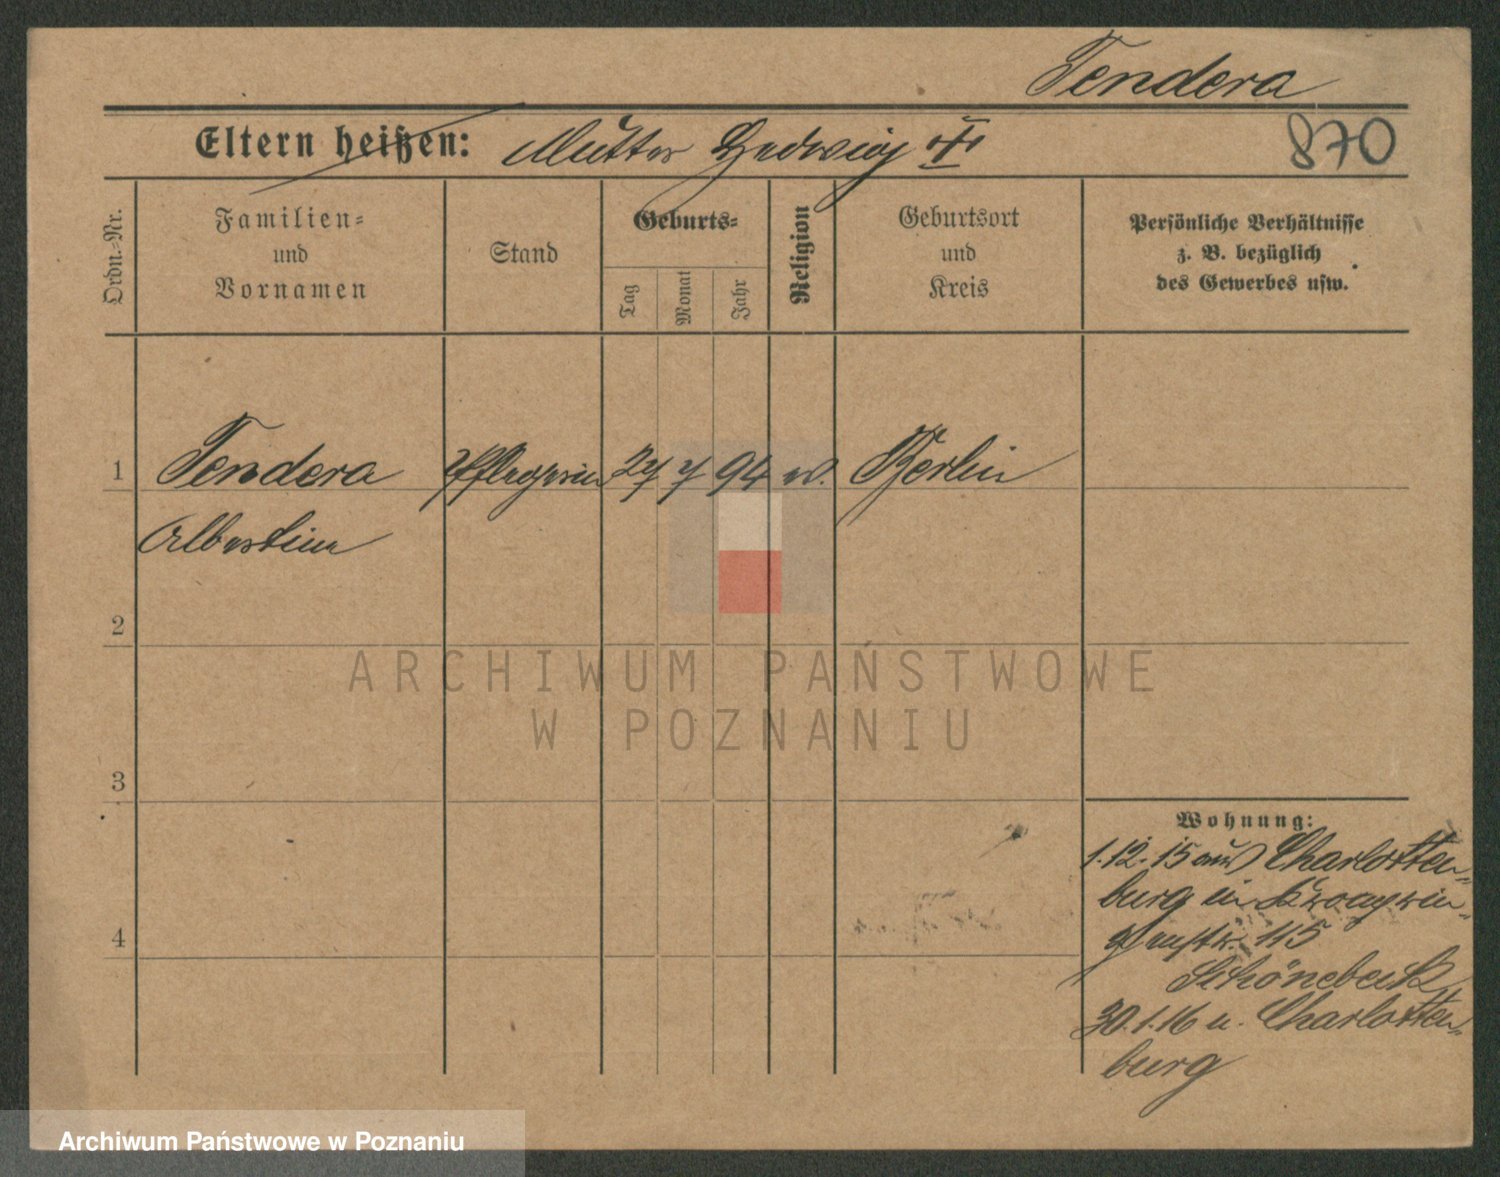 Tendera
Eltern heißen: Mutter Hedwig
870
Ordn.-Nr.
Familien-
und
Vornamen
Stand
Geburts-
Tag
Monat
Jahr
Religion
Geburtsort
und
Kreis
Persönliche Verhältnisse
z. B. bezüglich
des Gewerbes usw.
1 Tendera Pflegerin 27 7 94 Berlin
Albertine
2
ARCHIWUM PAŃSTWOWE
W POZNANIU
3
Wohnung:
1.12.15 aus Charlotten-
burg in
4
115
Schönebeck
30.1.16 n. Charlotten-
burg
Archiwum Państwowe w Poznaniu